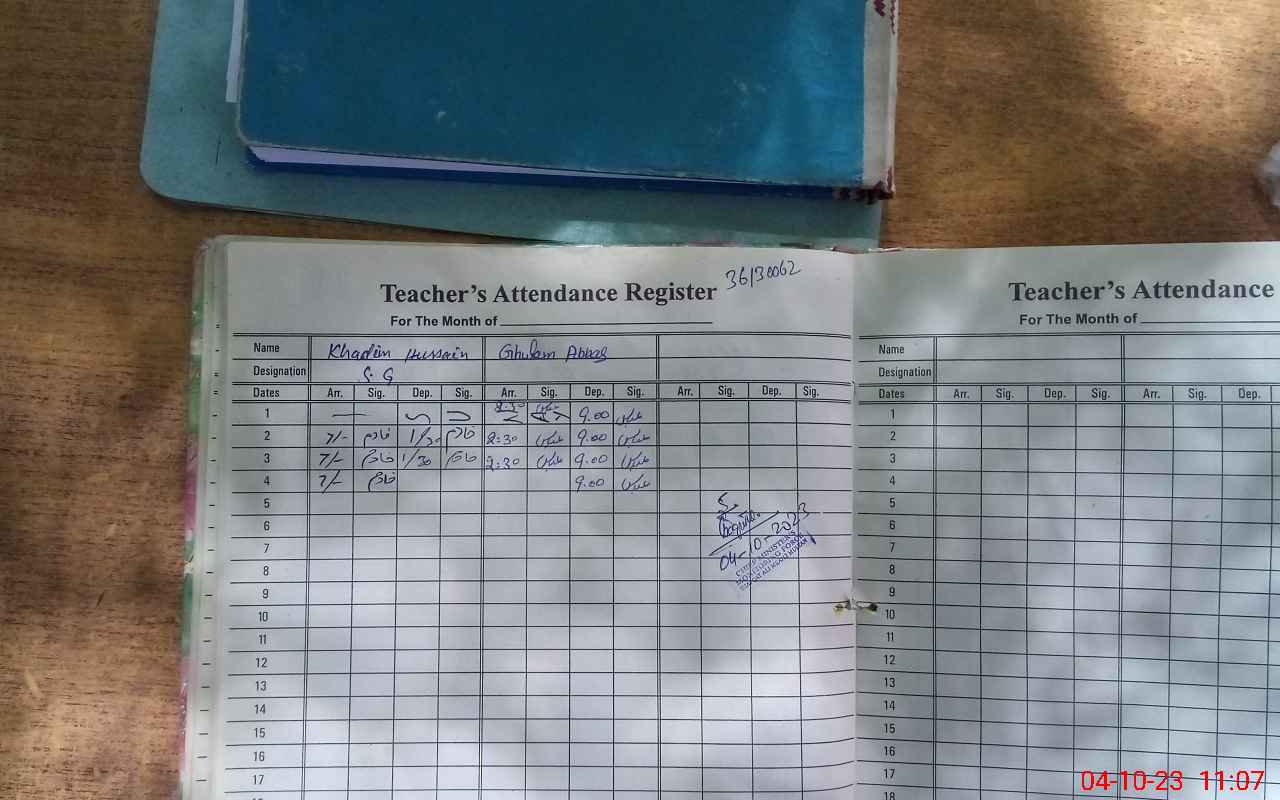 36130062
Teacher's Attendance Register
For The Month of
Name Khadim Hussain Ghulam Abbas
Designation S.G
Dates Arr. Sig. Dep. Sig. Arr. Sig. Dep. Sig. Arr. Sig. Dep. Sig.
1 2:30 عباس 9.00 عباس
2 7/- خادم 1/30 خادم 2:30 عباس 9.00 عباس
3 7/- خادم 1/30 خادم 2:30 عباس 9.00 عباس
4 7/- خادم 9.00 عباس
5
6
7
8
9
10
11
12
13
14
15
16
17
04-10-2023
CHIEF MINISTER'S
MONITORING FORCE
Teacher's Attendance
For The Month of
Name
Designation
Dates Arr. Sig. Dep. Sig. Arr. Sig. Dep.
1
2
3
4
5
6
7
8
9
10
11
12
13
14
15
16
17
18
04-10-23 11:07